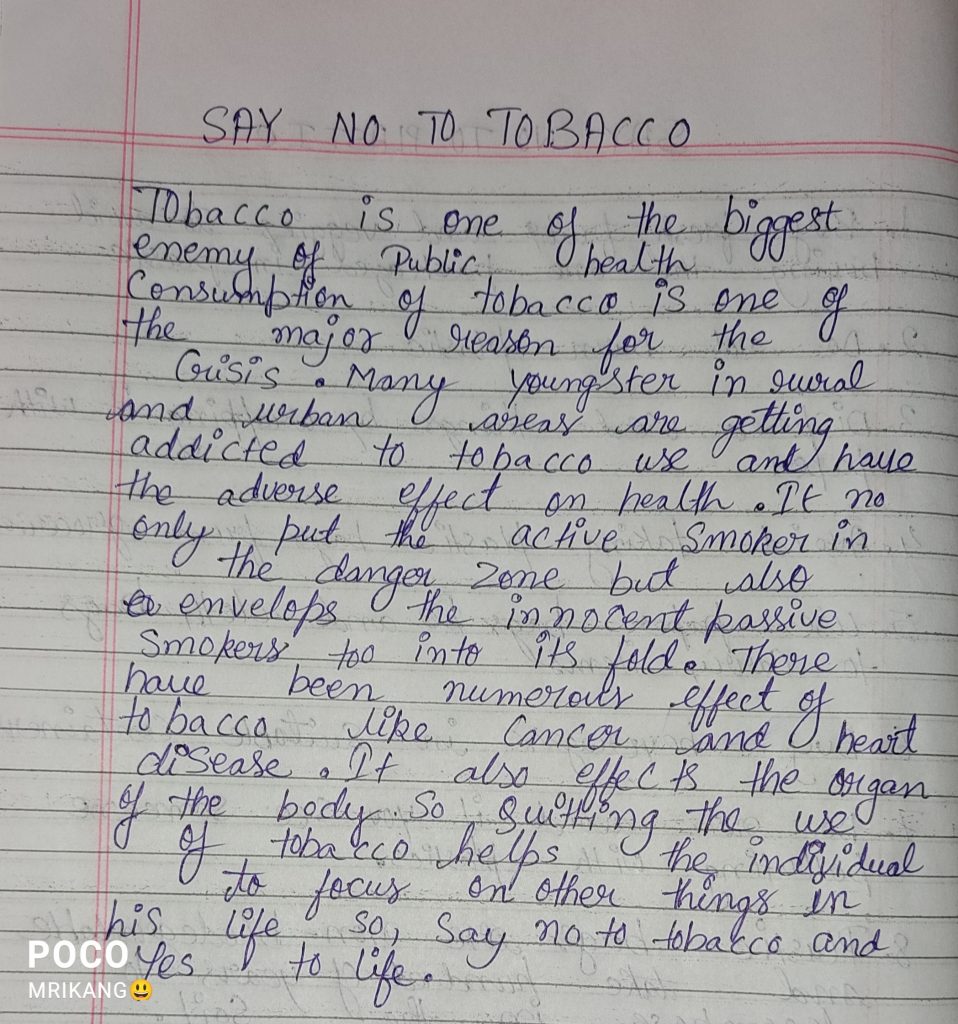 SAY NO TO TOBACCO
Tobacco is one of the biggest
enemy of Public health
Consumption of tobacco is one of
the major reason for the
Crisis. Many youngster in rural
and urban areas are getting
addicted to tobacco use and have
the adverse effect on health. It no
only put the active Smoker in
the danger zone but also
envelops the innocent passive
Smokers too into its fold. There
have been numerous effect of
tobacco like Cancer and heart
disease. It also effects the organ
of the body so quitting the use
of tobacco helps the individual
to focus on other things in
his life so, Say no to tobacco and
Yes to life.
POCO
MRIKANG😃